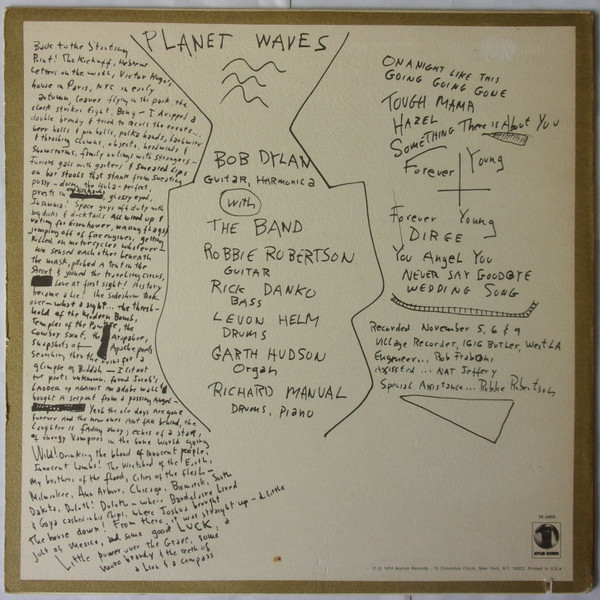 PLANET WAVES
Back to the Starting
Point! The Kickoff, Hebrew
Letters on the wall, Victor Hugo's
house in Paris, NYC in early
autumn, leaves flying in the park, the
clock strikes Eight, Bong— I dropped a
double brandy & tried to recall the events...
beer halls & pin balls, polka bands, barbwire
& thrashing clowns, objects, headwinds &
Snowstorms, family outings with strangers—
Furious gals with garters & smeared Lips
on bar stools that stank from sweating
pussy— doing the Hula— perfect,
priests in glassy eyed,
Insomnia! Space guys off duty with
big dicks & ducktails All wired up &
voting for Eisenhower, waving flags &
jumping off of fire engines, getting
killed on motorcycles whatever—
We sensed each other beneath
the mask, pitched a tent in the
Street & joined the traveling circus,
Love at first sight! History
became a Lie! the sideshow took
over— what a sight... the thresh-
hold of the Modern Bomb,
Temples of the the
Cowboy Saint, the
Snapshots of— Apache poets
Searching thru the ruins for a
glimpse of Buddah— I lit out
for parts unknown, found Jacob's
Ladder up against an adobe wall &
bought A serpent from a passing Angel—
Yeah the ole days Are gone
forever And the new ones Aint far behind, the
Laughter is fading away, echos of a star,
of Energy Vampires in the Gone World going
Wild! Drinking the blood of innocent people,
Innocent Lambs! The Wretched of the Earth,
My brothers of the flood, Cities of the flesh—
Milwaukee, Ann Arbor, Chicago, Bismarck, South
Dakota, Duluth! Duluth— where Baudelaire Lived
& Goya cashed in his Chips, where Joshua brought
the house down! From there, it was straight up— a Little
jolt of Mexico, and some good LUCK, a
Little power over the Grave, some
more brandy & the teeth of
a Lion & a compass
BOB DYLAN
GUITAR, HARMONICA
with
THE BAND
ROBBIE ROBERTSON
GUITAR
RICK DANKO
BASS
LEVON HELM
DRUMS
GARTH HUDSON
Organ
RICHARD MANUAL
DRUMS, PIANO
ON A NIGHT LIKE THIS
GOING GOING GONE
TOUGH MAMA
HAZEL
SOMETHING There is About You
Forever Young
Forever Young
DIRGE
You Angel You
NEVER SAY GOODBYE
WEDDING SONG
Recorded November 5, 6 & 9
Village Recorder, 1616 Butler, West LA
Engineer... Rob Fraboni
Assisted... NAT Jeffery
Special Assistance... Robbie Robertson
7E-1003
ASYLUM RECORDS
℗ © 1974 Asylum Records, 15 Columbus Circle, New York, N.Y. 10023. Printed in U.S.A.